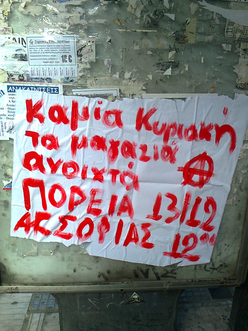 ΑΝΑΚΑΤΝΙΣΕΙΣ
Καμία Κυριακή
τα μαγαζιά
ανοιχτά
ΠΟΡΕΙΑ 13/12
ΑΓ.ΣΟΦΙΑΣ 12